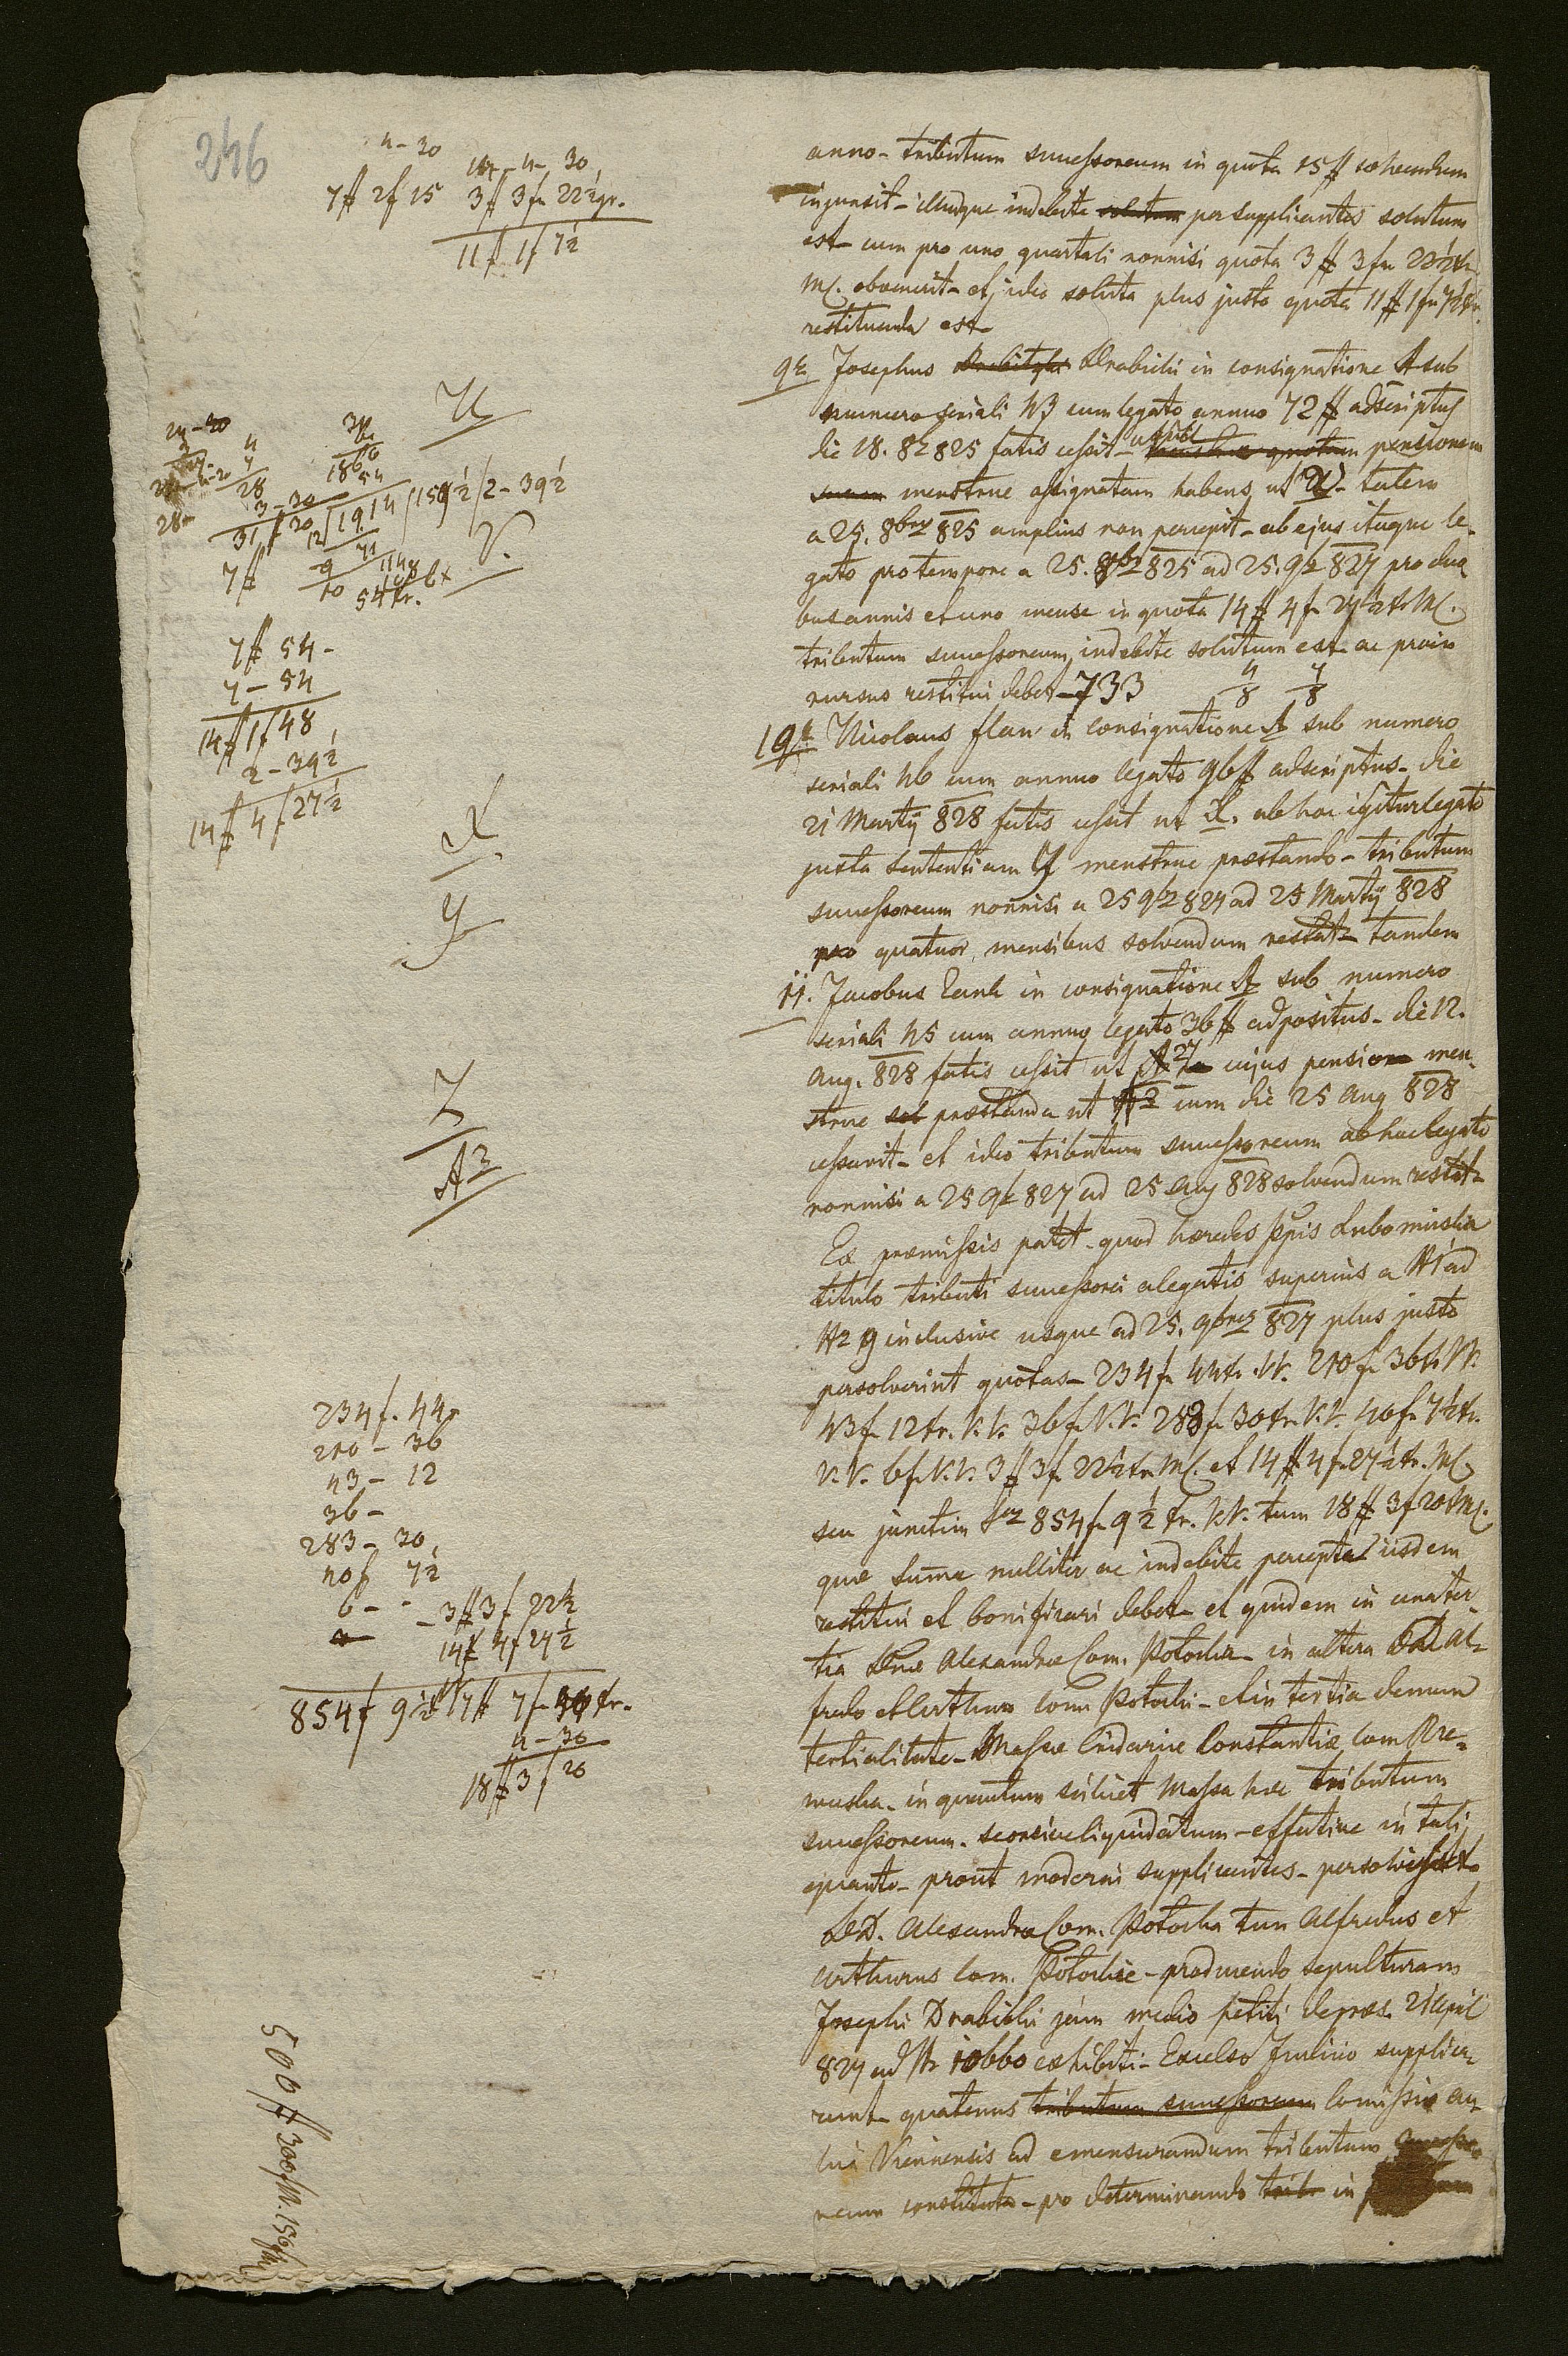 246
4 – 30
7# 2f 15
3# 3fr 22½ gr.
11# 1f 7½
anno – tributum successoreum in quota 15# solvendum
injunxit – illudque indebite solutum per supplicantes solutum
est – cum pro uno quartali nonnisi quota 3# 3fr 22½ xr.
M. obvenerit – et ideo soluta plus justo quota 11# 1fr 7½ xr.
restituenda est
9º Josephus Drabicki in consignatione A sub
numero seriali 43 cum legato annuo 72# adscriptus
die 18. 8b 825 fatis cessit – pensionem
menstrue assignatam habens ut U – talem
a 25. 8bris 825 amplius non percepit – ab ejus itaque le-
gato pro tempore a 25. 8br 825 ad 25. 9br 827 pro dua
bus annis et uno mense in quota 14# 4fr 27½ xr M.
tributum successoreum indebite solutum est ac proin
rursus restitui debet – 733 4/8 4/8
10º Nicolaus Flau in consignatione A sub numero
seriali 46 cum annuo legato 96# adscriptus – die
21 Martÿ 828 fatis cessit ut X. ab hoc igitur legato
juxta sententiam Y menstrue præstando – tributum
successoreum nonnisi a 25 9br 827 ad 25 Martÿ 828
pro quatuor mensibus solvendum restat – tandem
11. Jacobus Lank in consignatione A sub numero
seriali 45 cum annuo legato 36# adpositus – die 12.
Aug. 828 fatis cessit ut Z cujus pensio men-
strue præstanda ut A2 cum die 25 Aug 828
cessavit – et ideo tributum successoreum ab hoc legato
nonnisi a 25 9br 827 ad 25 Aug 828 solvendum restat –
Ex præmissis patet – quod hæredes Ppis Lubomirska
titulo tributi successorei a legatis superius a N 1 ad
N 9 inclusive usque ad 25. 9bris 827 plus justo
persolverint quotas – 234fr 44xr. V.V. 210fr 36xr V.V.
43fr 12xr. V.V. 36fr V.V. 283fr 30xr. V.V. 40fr 7½xr.
V.V. 6fr V.V. 3# 3fr 22½xr M. et 14# 4fr 27½xr. M.
seu junctim 854fr 9½ xr. V.V. tum 18# 3fr 20xr M.
quæ summæ nulliter ac indebite perceptæ iisdem
restitui et bonificari debet – et quidem in una ter-
tia Alexandræ Com. Potocka – in altera Al-
fredo et Arthuro Com Potocki – et in tertia demum
tertialitate – Massæ Cridariæ Constantiæ Com Rze-
wuska – in quantum scilicet Massa hæc tributum
successoreum – seorsive liquidatum – effective in tali
quanto – prout moderni supplicantes – persolvisset –
Alexandra Com. Potocka tum Alfredus et
Arthurus Com. Potockie – producendo sepulturam
Josephi Drabicki jam medio petiti de præs. 21 April
827 ad N 10660 exhibiti – Excelso Judicio supplica-
runt – quatenus tributum successoreum Comissio Au-
lica Viennensis ad emensurandum tributum successo-
reum constituta – pro determinando in
U
V.
7#
7# 54 –
7 – 54
14# 1f 48
2 – 39½
14# 4f 27½
X
Y
Z
A2
234f. 44
210 – 36
43 – 12
36 –
283 – 30
40f 7½
6 – –
3# 3f 22½
14# 4f 27½
854f 9½
17# 7f xr.
4 – 30
18# 3f 20